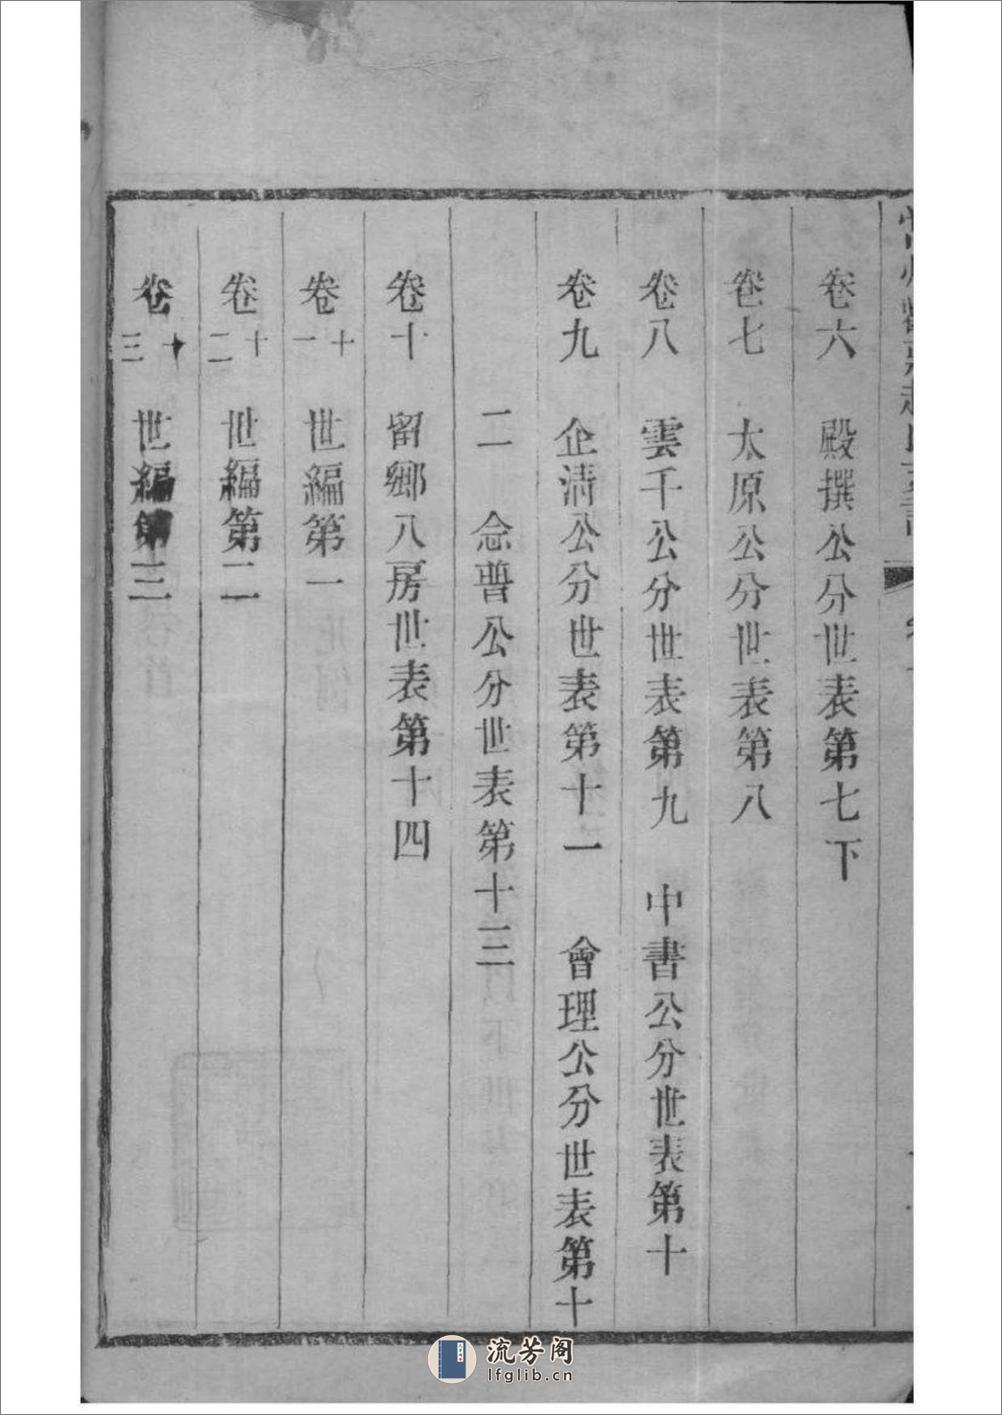 卷六 殿撰公分世表第七下
卷七 太原公分世表第八
卷八 雲千公分世表第九 中書公分世表第十
卷九 企淸公分世表第十一 會理公分世表第十
二 念普公分世表第十三
卷十 留鄉八房世表第十四
卷十一 世編第一
卷十二 世編第二
卷十三 世編第三
流芳阁
lfglib.cn